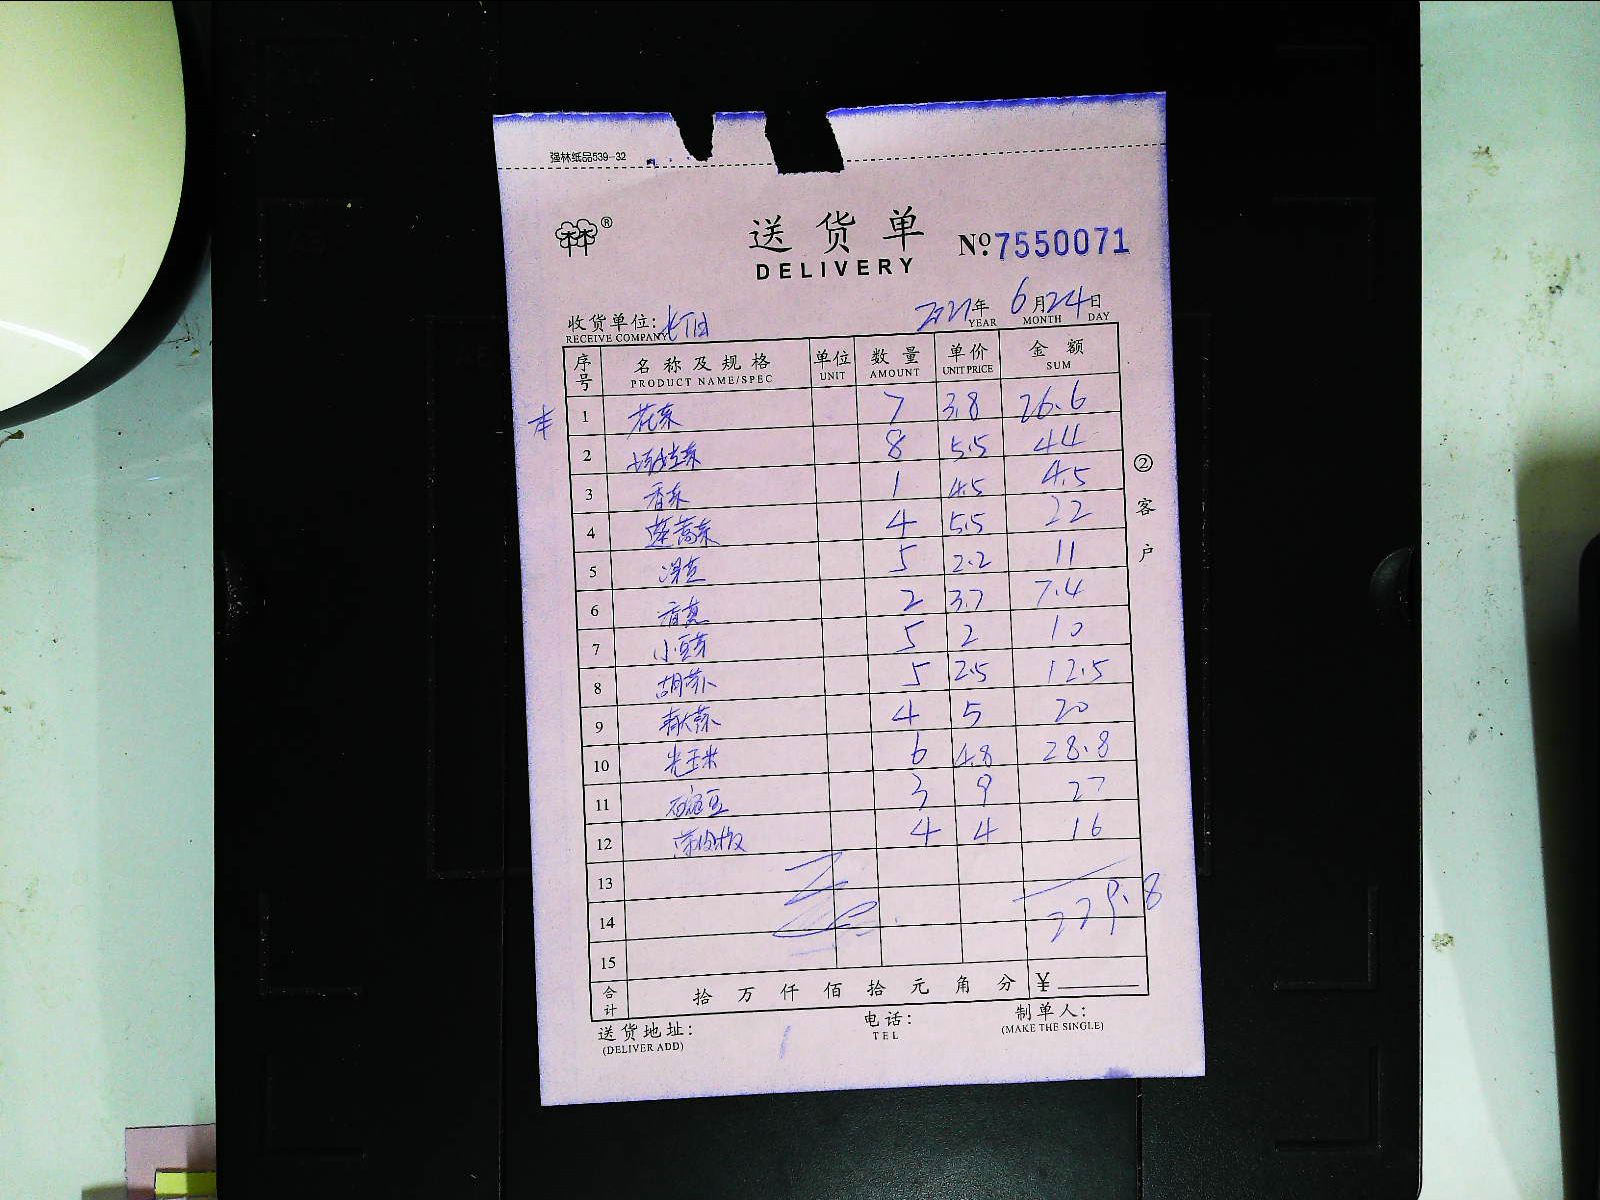 强林纸品539-32
送货单
DELIVERY
Nº:7550071
收货单位:
RECEIVE COMPANY
2021年 6月24日
YEAR MONTH DAY
序号 名称及规格 单位 数量 单价 金额
PRODUCT NAME/SPEC UNIT AMOUNT UNIT PRICE SUM
1 花菜 7 3.8 26.6
2 8 5.5 44
3 香菜 1 4.5 4.5
4 蓬蒿菜 4 5.5 22
5 5 2.2 11
6 香葱 2 3.7 7.4
7 小豆芽 5 2 10
8 胡萝卜 5 2.5 12.5
9 4 5 20
10 光玉米 6 4.8 28.8
11 3 9 27
12 4 4 16
13
14 229.8
15
合计 拾 万 仟 佰 拾 元 角 分 ¥
送货地址: 电话: 制单人:
(DELIVER ADD) TEL (MAKE THE SINGLE)
②客户